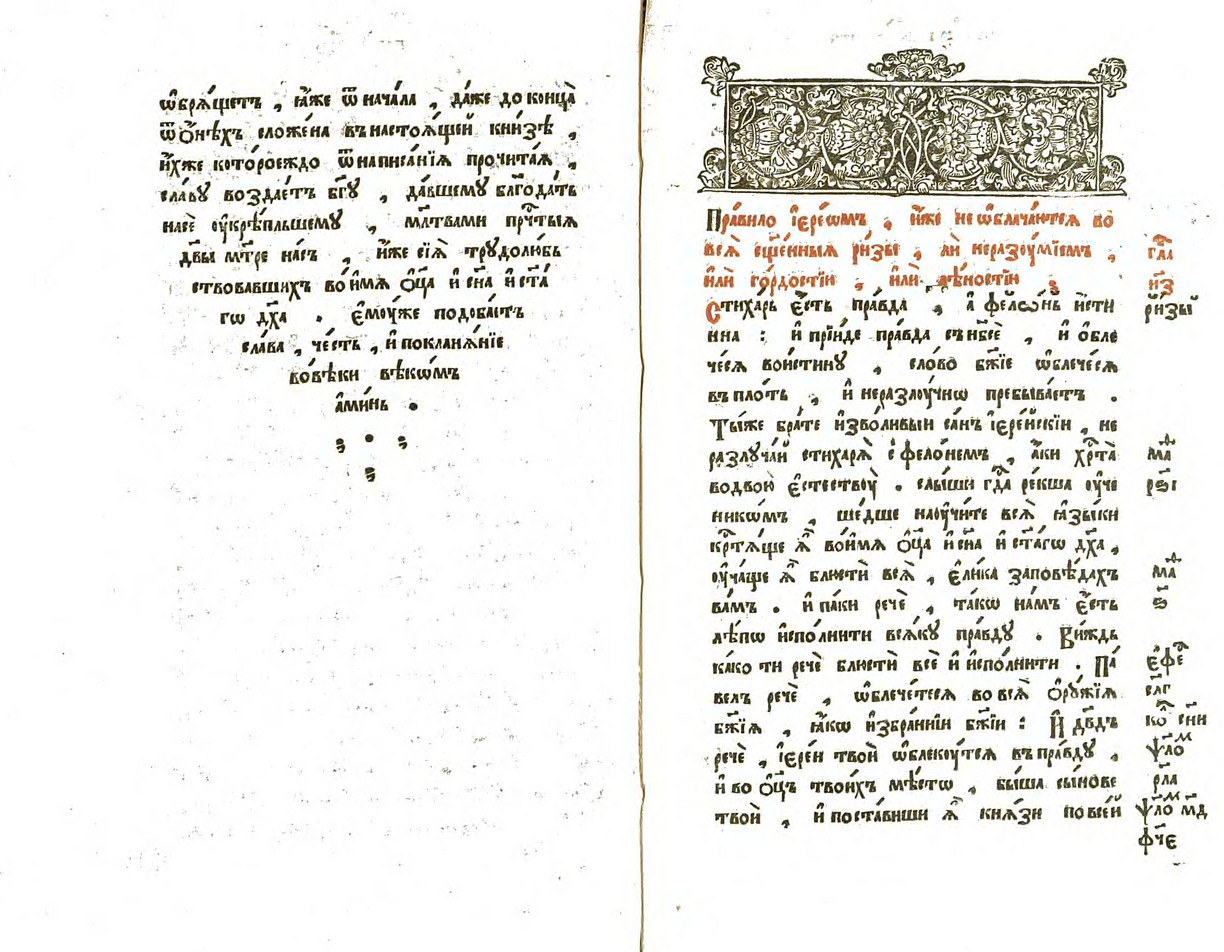 ѡ҆брѧ́щетъ , ꙗ҆́же ѿ нача́ла , да́же до конца̀
ѿ ѻ҆́нѣхъ сложе́на въ настоѧ́щей кни́зѣ ,
и҆́хже кото́рое́ждо ѿ написа́нїѧ прочита́ѧ ,
сла́вꙋ воздае́тъ бг҃ꙋ , да́вшемꙋ блгⷣодать
насѐ ᲂу҆крѣ́пльшемꙋ , мл҃твами прⷱ҇тыѧ
дв҃ы мт҃ре на́съ , и҆́же сїѧ̀ трꙋдолю́бь
ствовавшихъ во и҆́мѧ ѻ҆ц҃а̀ и҆ сн҃а и҆ ст҃а́
гѡ дх҃а . є҆мᲂу́же подоба́етъ
сла́ва , че́сть , и҆ покланѧ́нїе
во вѣ́ки вѣкѡ́мъ
а҆ми́нь .
Пра́вило і҆єре́ѡмъ , и҆́же не ѡ҆блача́ютсѧ во
всѧ̀ сщ҃е́нныѧ ри́зы , лѝ неразᲂу́мїемъ ,
и҆лѝ го́рдостїи , и҆лѝ лѣ́ностїи
гл҃а
и҃з
Стиха́рь є҆́сть пра́вда , а҆ фелѡ́нь и҆́сти
ри́зы
нна : и҆ прїи́де пра́вда съ нб҃сѐ , и҆ ѻ҆бле
че́сѧ вои́стинꙋ , сло́во бж҃їе ѡ҆блече́сѧ
въ пло́ть , и҆ неразлꙋ́чнѡ пребыва́етъ .
Ты́же бра́те и҆зво́ливыи са́нъ і҆єре́йскїи , не
разлꙋча́й стиха́рѧ с̾ фело́немъ , а҆́ки хрⷭ҇та̀
маⷴ
во двою̀ є҆стествᲂу̀ . слы́ши гдⷭ҇а ре́кша ᲂу҆че
рѕ҃і
никѡ́мъ , ше́дше наᲂучи́те всѧ̀ ꙗ҆зы́ки
крⷭ҇тѧ́ще ѧ҆̀ во и҆́мѧ ѻ҆ц҃а̀ и҆ сн҃а и҆ ст҃а́гѡ дх҃а ,
ᲂу҆ча́ще ѧ҆̀ блюстѝ всѧ̀ , є҆ли́ка запове́дахъ
маⷴ
ва́мъ . и҆ па́ки речѐ , та́кѡ на́мъ є҆́сть
ѕ҃
лѣ́пѡ и҆спо́лнити всѧ́кꙋ пра́вдꙋ . Ви́ждь
ка́ко ти речѐ блюстѝ всѐ и҆ и҆спо́лнити . Па́
є҆феⷭ҇
велъ речѐ , ѡ҆блече́тесѧ во всѧ̀ ѻ҆рꙋ́жїѧ
сл҃г
бж҃їѧ , ꙗ҆́кѡ и҆збра́ннїи бж҃їи : И҆ дв҃дъ
коⷧ҇ сн҃и
речѐ , і҆єре́и твоѝ ѡ҆блекᲂу́тсѧ въ пра́вдꙋ ,
ѱлоⷨ
и҆ во ѻ҆ц҃ъ твои́хъ мѣ́стѡ , бы́ша сы́нове
рл҃а
твоѝ , и҆ поста́виши ѧ҆̀ кнѧ́зи по все́й
ѱлоⷨ м҃д
ф҃ч҃є